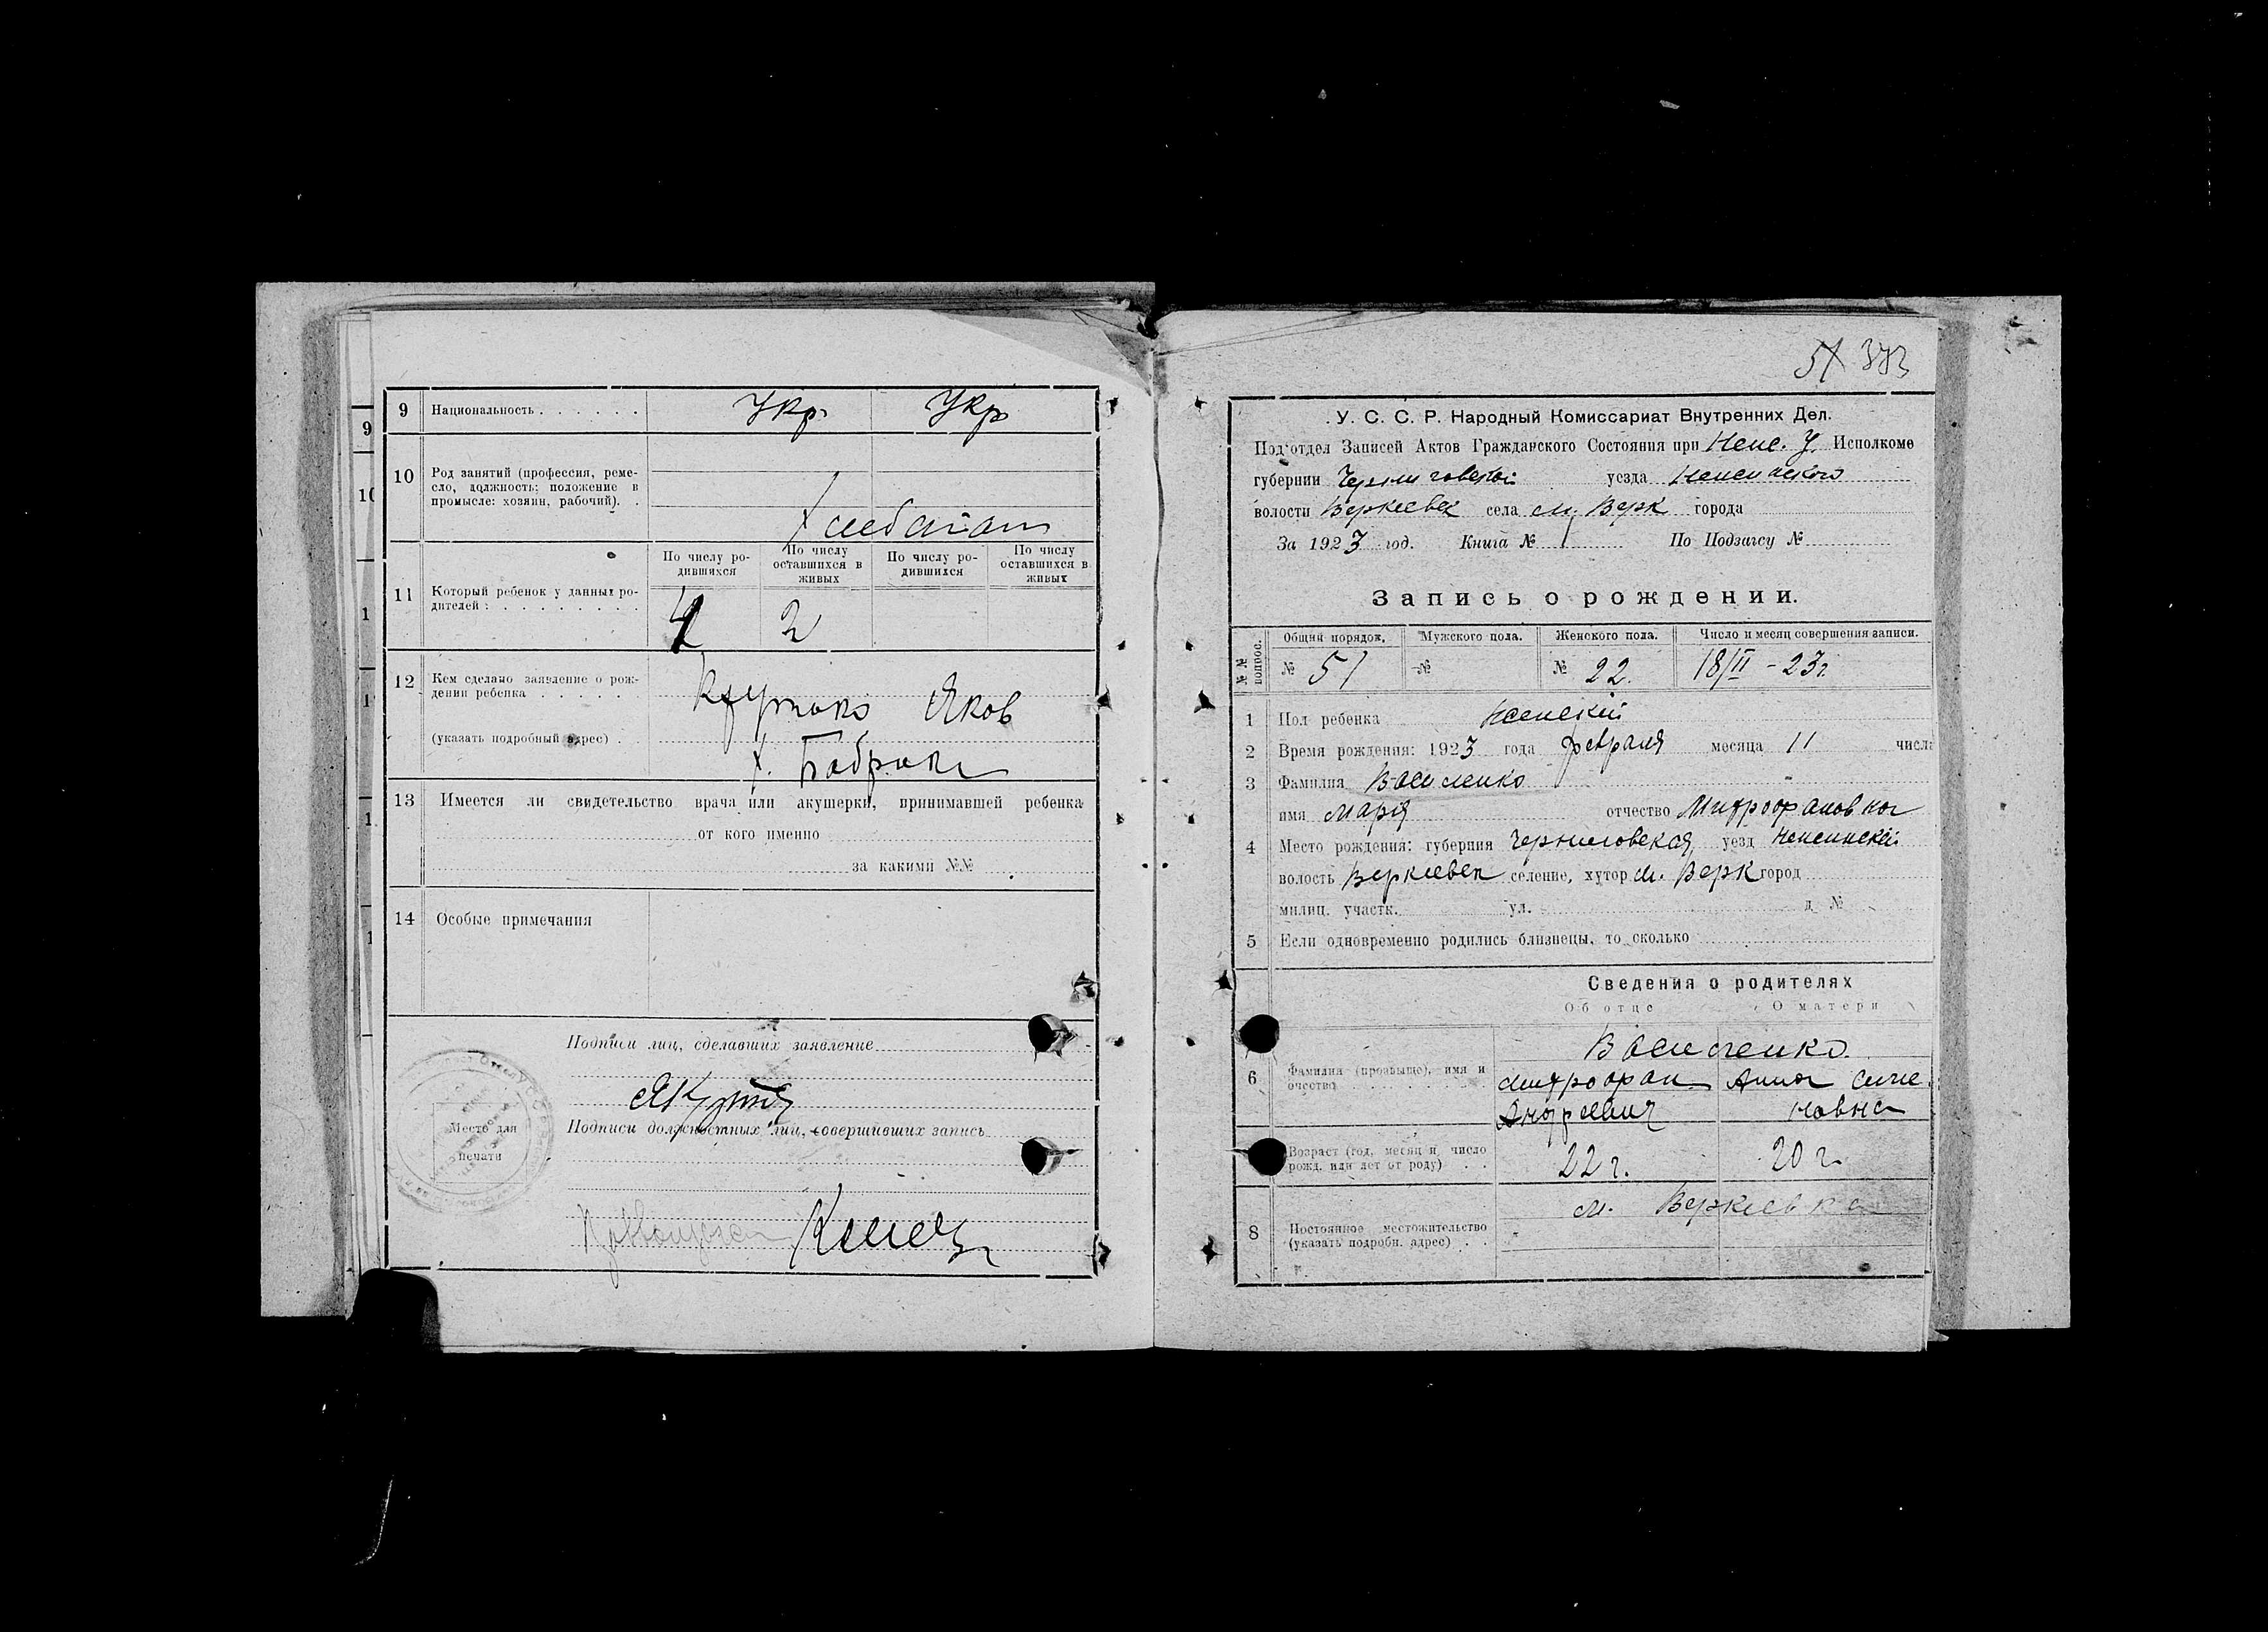 9 Национальность . . . . . . Укр. Укр
10 Род занятий (профессия, реме-
сло, должность; положение в
промысле: хозяин, рабочий). .
Хлебопаш
По числу ро-
дившихся
По числу
оставшихся в
живых
По числу ро-
дившихся
По числу
оставшихся в
живых
11 Который ребенок у данных ро-
дителей : . . . . . . . . .
2
12 Кем сделано заявление о рож-
дении ребенка . . . . .
Яков
(указать подробный адрес) . .
х.
13 Имеется ли свидетельство врача или акушерки, принимавшей ребенка
от кого именно
за какими №№
14 Особые примечания
Подписи лиц, сделавших заявление
Подписи должностных лиц, совершивших запись
Место для
печати
9
10
1
1
1
1
51 373
У. С. С. Р. Народный Комиссариат Внутренних Дел.
Подотдел Записей Актов Гражданского Состояния при Неж. У. Исполкоме
губернии Черниговской уезда Неженского
волости Веркиевск села м. Верк города
За 1923 год. Книга № 1 По Подзагсу №
Запись о рождении.
№№ вопрос.
Общий порядок. Мужского пола. Женского пола. Число и месяц совершения записи.
№ 51 № № 22. 18/II - 23 г.
1 Пол ребенка женский
2 Время рождения: 1923 года февраля месяца 11 числа
3 Фамилия Василенко
имя Мария отчество Митрофановна
4 Место рождения: губерния Черниговская уезд Неженский
волость Веркиевск селение, хутор м. Верк город
милиц. участк. ул. д №
5 Если одновременно родились близнецы, то сколько
Сведения о родителях
Об отце О матери
Василенко
6 Фамилия (прозвыще), имя и
очество
Митрофан Анна Симо
Андреевич новна
Возраст (год, месяц и число
рожд. или лет от роду) . .
22 г. 20 г.
м. Веркиевка
8 Постоянное местожительство
(указать подробн. адрес) . .